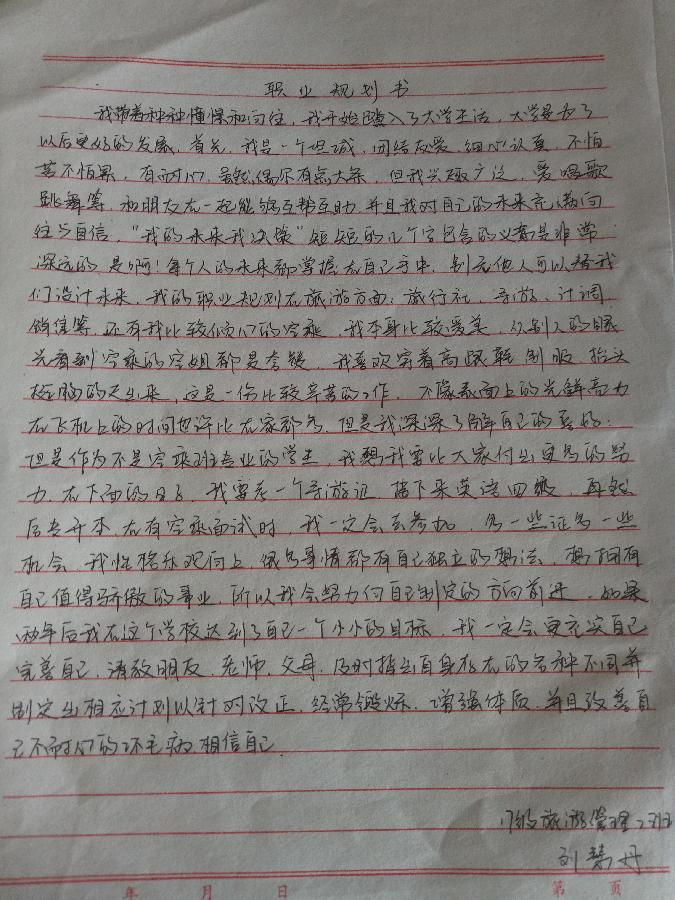 职业规划书
我带着种种憧憬和向往,我开始踏入了大学生活,大学是为了
以后更好的发展,首先,我是一个坦诚,团结友爱,细心认真,不怕
苦不怕累,有耐心,虽然偶尔有点大条,但我兴趣广泛,爱唱歌
跳舞等,和朋友在一起能够互帮互助,并且我对自己的未来充满向
往与自信,“我的未来我决策”短短的几个字包含的义都是非常
深远的,是啊!每个人的未来都掌握在自己手中,别无他人可以替我
们设计未来,我的职业规划在旅游方面,旅行社,导游,计调,
销售等,还有我比较倾心的空乘,我本身比较爱美,从别人的眼
光看到空乘的空姐都是夸赞,我喜欢穿着高跟鞋,制服,抬头
挺胸的走出来,这是一份比较辛苦的工作,不像表面上的光鲜亮力
在飞机上的时间也许比在家都多,但是我深深了解自己的喜好,
但是作为不是空乘班专业的学生,我想我要比大家付出更多的努
力,在下面的日子,我要考一个导游证,接下来英语四级,再然
后专升本,在有空乘面试时,我一定会去参加,多一些证多一些
机会,我性格乐观向上,很多事情都有自己独立的想法,想拥有
自己值得骄傲的事业,所以我会努力向自己制定的方向前进,如果
两年后我在这个学校达到了自己一个小小的目标,我一定会更充实自己
完善自己,请教朋友,老师,父母,及时指出自身存在的各种不同并
制定出相应计划以针对改正,经常锻炼,增强体质,并且改善自
己不耐心的坏毛病,相信自己.
17级旅游管理2班
刘慧丹
年 月 日 第 页